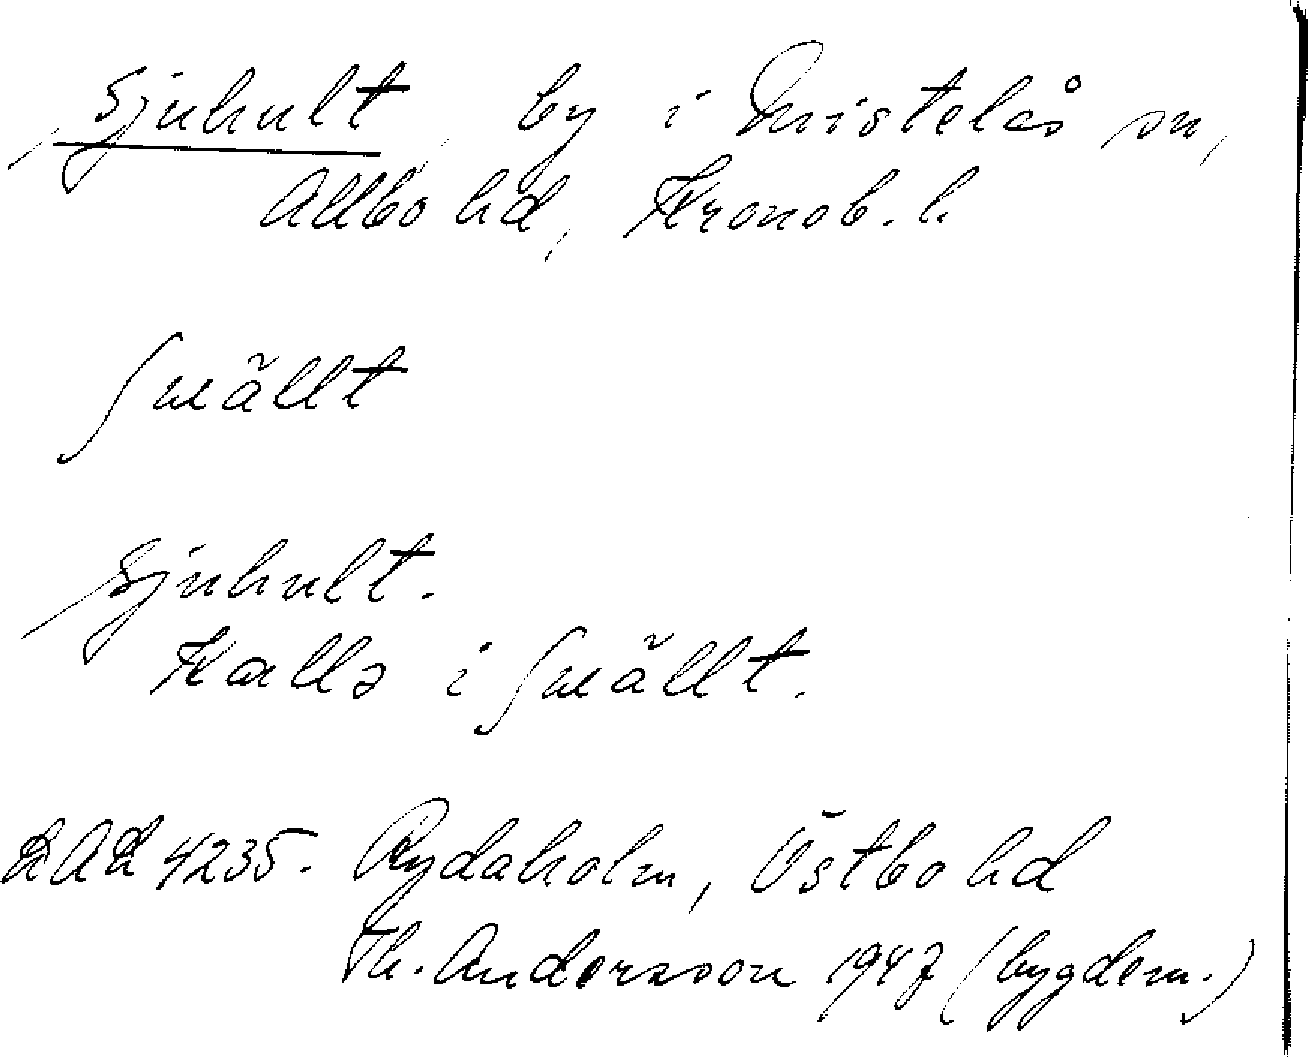 Sjuhult, by i Mistelås sn,
Allbo hd, Kronob. l.
ʃuällt
Sjuhult.
Kallas i ʃuällt.
4235. Rydaholm, Östbo hd
Th. Andersson 1947 (bygdem.)